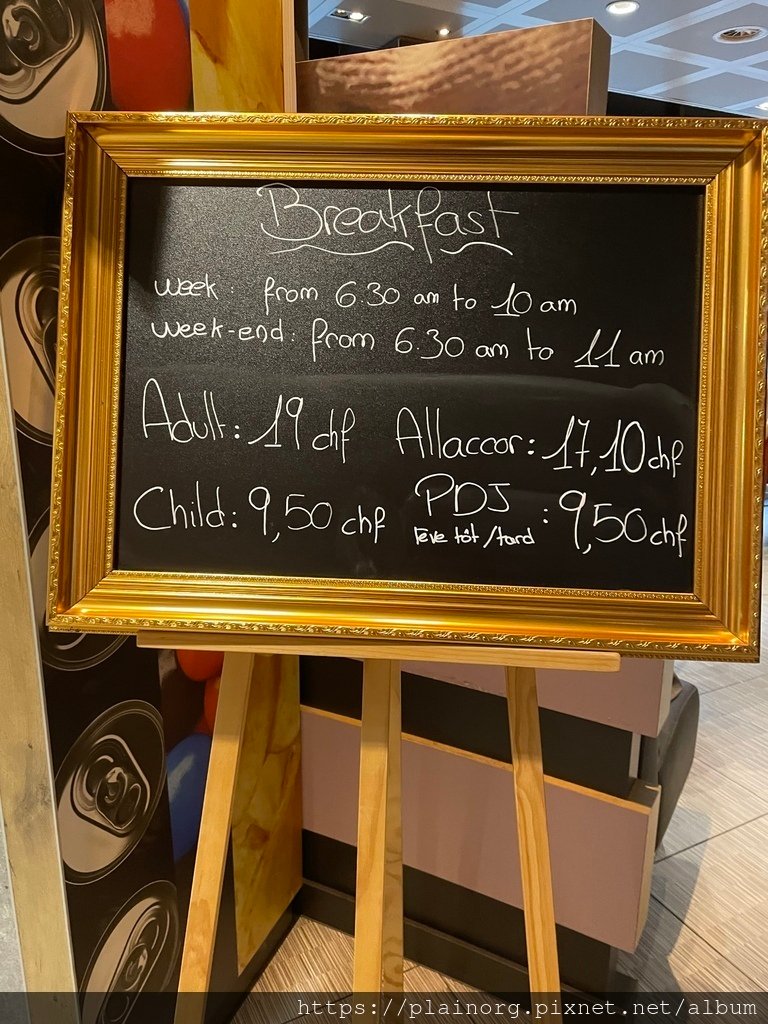 Breakfast
week: from 6.30 am to 10 am
week-end: from 6.30 am to 11 am
Adult: 19 chf Allaccor: 17,10 chf
Child: 9,50 chf PDJ lève tôt/tard : 9,50 chf
https://plainorg.pixnet.net/album